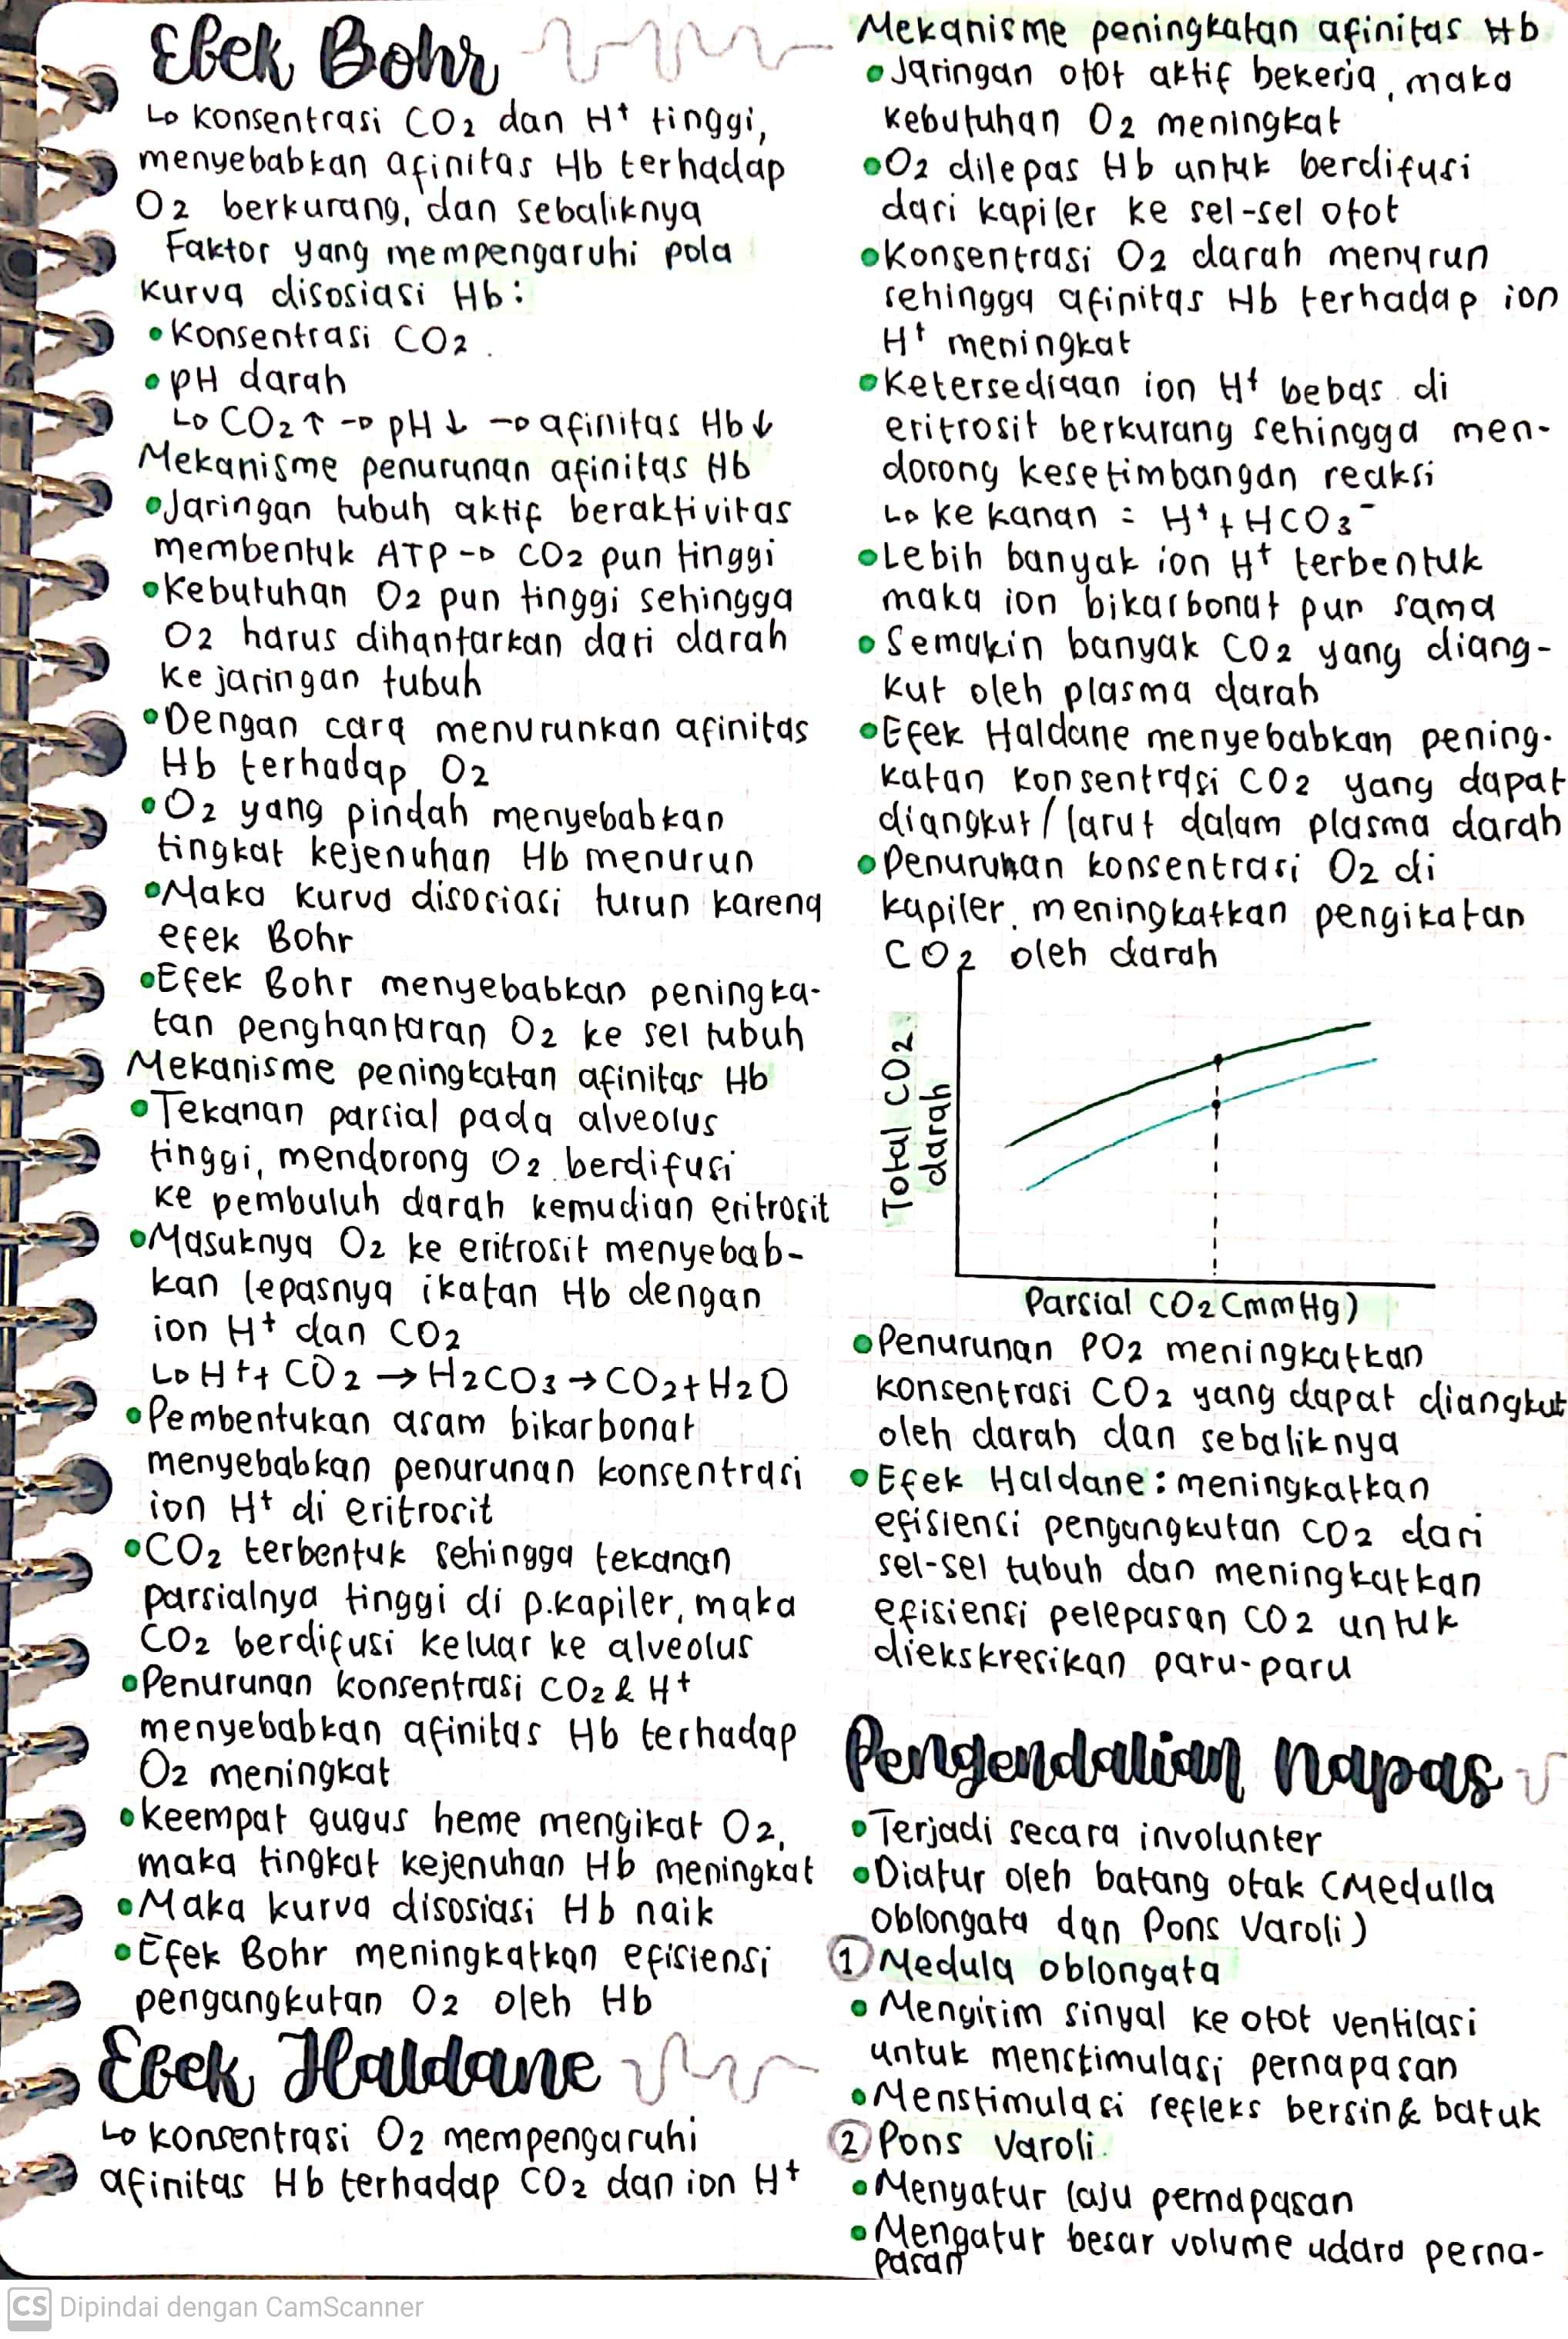 Efek Bohr
↳ konsentrasi CO2 dan H+ tinggi,
menyebabkan afinitas Hb terhadap
O2 berkurang, dan sebaliknya
Faktor yang mempengaruhi pola
kurva disosiasi Hb:
• Konsentrasi CO2.
• pH darah
↳ CO2↑ → pH↓ → afinitas Hb↓
Mekanisme penurunan afinitas Hb
• Jaringan tubuh aktif beraktivitas
membentuk ATP → CO2 pun tinggi
• Kebutuhan O2 pun tinggi sehingga
O2 harus dihantarkan dari darah
ke jaringan tubuh
• Dengan cara menurunkan afinitas
Hb terhadap O2
• O2 yang pindah menyebabkan
tingkat kejenuhan Hb menurun
• Maka kurva disosiasi turun karena
efek Bohr
• Efek Bohr menyebabkan peningka-
tan penghantaran O2 ke sel tubuh
Mekanisme peningkatan afinitas Hb
• Tekanan parsial pada alveolus
tinggi, mendorong O2 berdifusi
ke pembuluh darah kemudian eritrosit
• Masuknya O2 ke eritrosit menyebab-
kan lepasnya ikatan Hb dengan
ion H+ dan CO2
↳ H+ + CO2 → H2CO3 → CO2 + H2O
• Pembentukan asam bikarbonat
menyebabkan penurunan konsentrasi
ion H+ di eritrosit
• CO2 terbentuk sehingga tekanan
parsialnya tinggi di p.kapiler, maka
CO2 berdifusi keluar ke alveolus
• Penurunan konsentrasi CO2 & H+
menyebabkan afinitas Hb terhadap
O2 meningkat
• keempat gugus heme mengikat O2,
maka tingkat kejenuhan Hb meningkat
• Maka kurva disosiasi Hb naik
• Efek Bohr meningkatkan efisiensi
pengangkutan O2 oleh Hb
Efek Haldane
↳ konsentrasi O2 mempengaruhi
afinitas Hb terhadap CO2 dan ion H+
Mekanisme peningkatan afinitas Hb
• Jaringan otot aktif bekerja, maka
kebutuhan O2 meningkat
• O2 dilepas Hb untuk berdifusi
dari kapiler ke sel-sel otot
• Konsentrasi O2 darah menurun
sehingga afinitas Hb terhadap ion
H+ meningkat
• Ketersediaan ion H+ bebas di
eritrosit berkurang sehingga men-
dorong kesetimbangan reaksi
↳ ke kanan = H+ + HCO3-
• Lebih banyak ion H+ terbentuk
maka ion bikarbonat pun sama
• Semakin banyak CO2 yang diang-
kut oleh plasma darah
• Efek Haldane menyebabkan pening-
katan konsentrasi CO2 yang dapat
diangkut/larut dalam plasma darah
• Penurunan konsentrasi O2 di
kapiler, meningkatkan pengikatan
CO2 oleh darah
Total CO2
darah
Parsial CO2 (mmHg)
• Penurunan PO2 meningkatkan
konsentrasi CO2 yang dapat diangkut
oleh darah dan sebaliknya
• Efek Haldane: meningkatkan
efisiensi pengangkutan CO2 dari
sel-sel tubuh dan meningkatkan
efisiensi pelepasan CO2 untuk
diekskresikan paru-paru
Pengendalian Napas
• Terjadi secara involunter
• Diatur oleh batang otak (Medulla
oblongata dan Pons Varoli)
① Medula oblongata
• Mengirim sinyal ke otot ventilasi
untuk menstimulasi pernapasan
• Menstimulasi refleks bersin & batuk
② Pons Varoli.
• Mengatur laju pernapasan
• Mengatur besar volume udara perna-
pasan
CS Dipindai dengan CamScanner